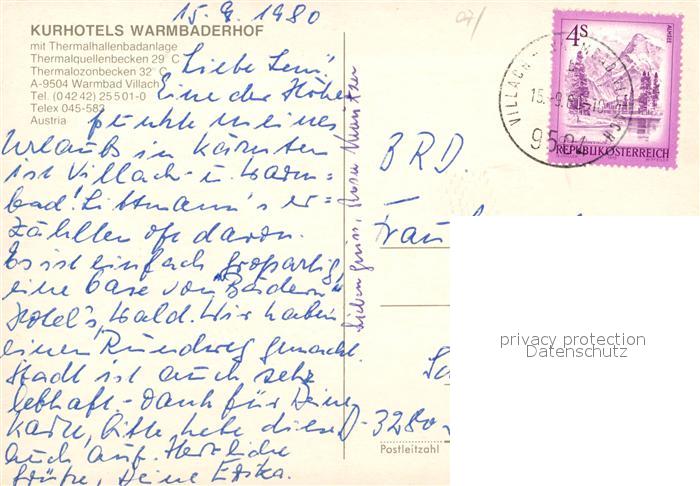 15.9.1980
07/
KURHOTELS WARMBADERHOF
mit Thermalhallenbadanlage
Thermalquellenbecken 29° C
Thermalozonbecken 32° C
A-9504 Warmbad Villach
Tel. (0 42 42) 25 5 01-0
Telex 045-582
Austria
Liebe Leni,
Eine der Höhe
punkte meines
Urlaubs in Kärnten
ist Villach- u. Warm-
bad! Littmann's er=
zählten oft davon.
Es ist einfach großartig,
eine Oase von "Bädern"
Hotel's, Wald. Wir haben
einen Rundweg gemacht.
Stadt ist auch sehr
lebhaft.- Dank für Deine
Karte, bitte, hebe diese
auch auf. Herzliche
Grüße, Deine Erika.
Lieben Gruss,
4s
ALMSEE
REPUBLIK ÖSTERREICH
VILLACH
9504
BRD.
Frau
3280
Postleitzahl
privacy protection
Datenschutz